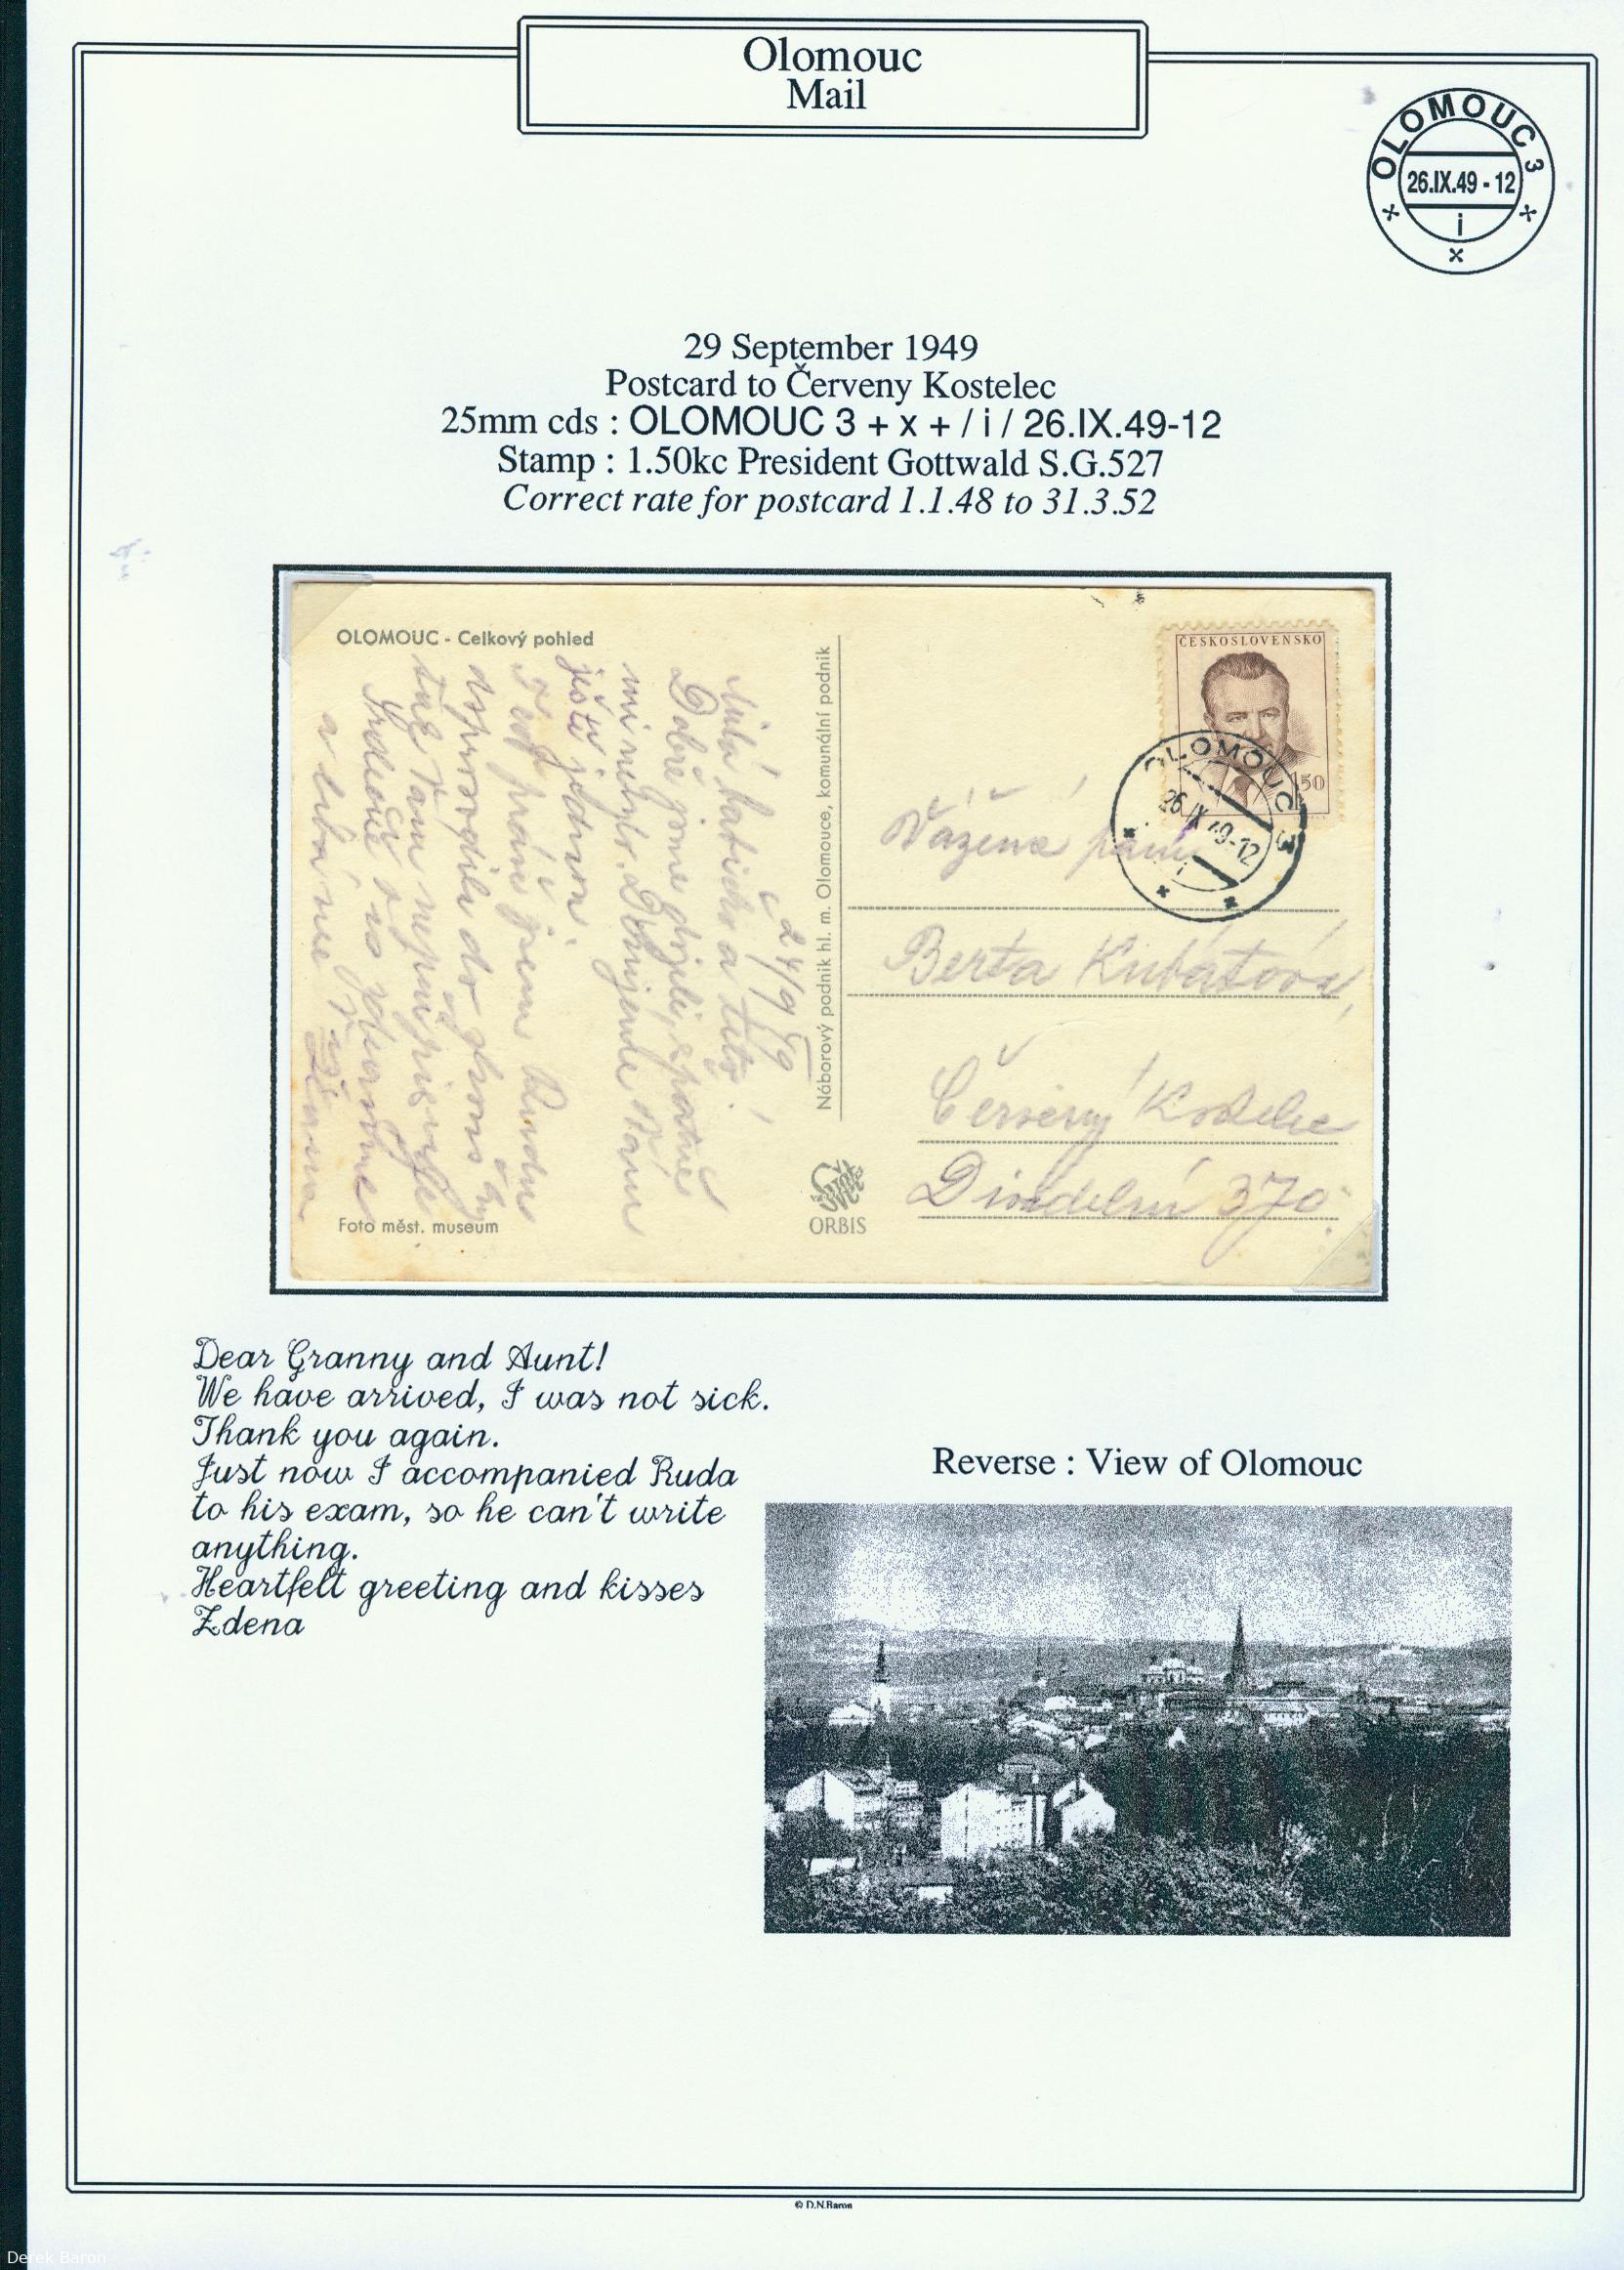 Olomouc
Mail
OLOMOUC 3
26.IX.49 - 12
i
x
29 September 1949
Postcard to Červeny Kostelec
25mm cds : OLOMOUC 3 + x + / i / 26.IX.49-12
Stamp : 1.50kc President Gottwald S.G.527
Correct rate for postcard 1.1.48 to 31.3.52
OLOMOUC - Celkový pohled
24/9 49
Milá babičko a teto!
Dobře jsme dojeli, špatně
mi nebylo. Děkujeme Vám
ještě jednou.
Teď právě jsem Rudu
a líbá vás Zdena
Foto měst. museum
Náborový podnik hl. m. Olomouce, komunální podnik
ORBIS
ČESKOSLOVENSKO
1 50
OLOMOUC 3
26.IX.49-12
i
Vážená paní
Berta Kubatová,
Červený Kostelec
Divadelní 370.
Dear Granny and Aunt!
We have arrived, I was not sick.
Thank you again.
Just now I accompanied Ruda
to his exam, so he can't write
anything.
Heartfelt greeting and kisses
Zdena
Reverse : View of Olomouc
© D.N.Baron
Derek Baron